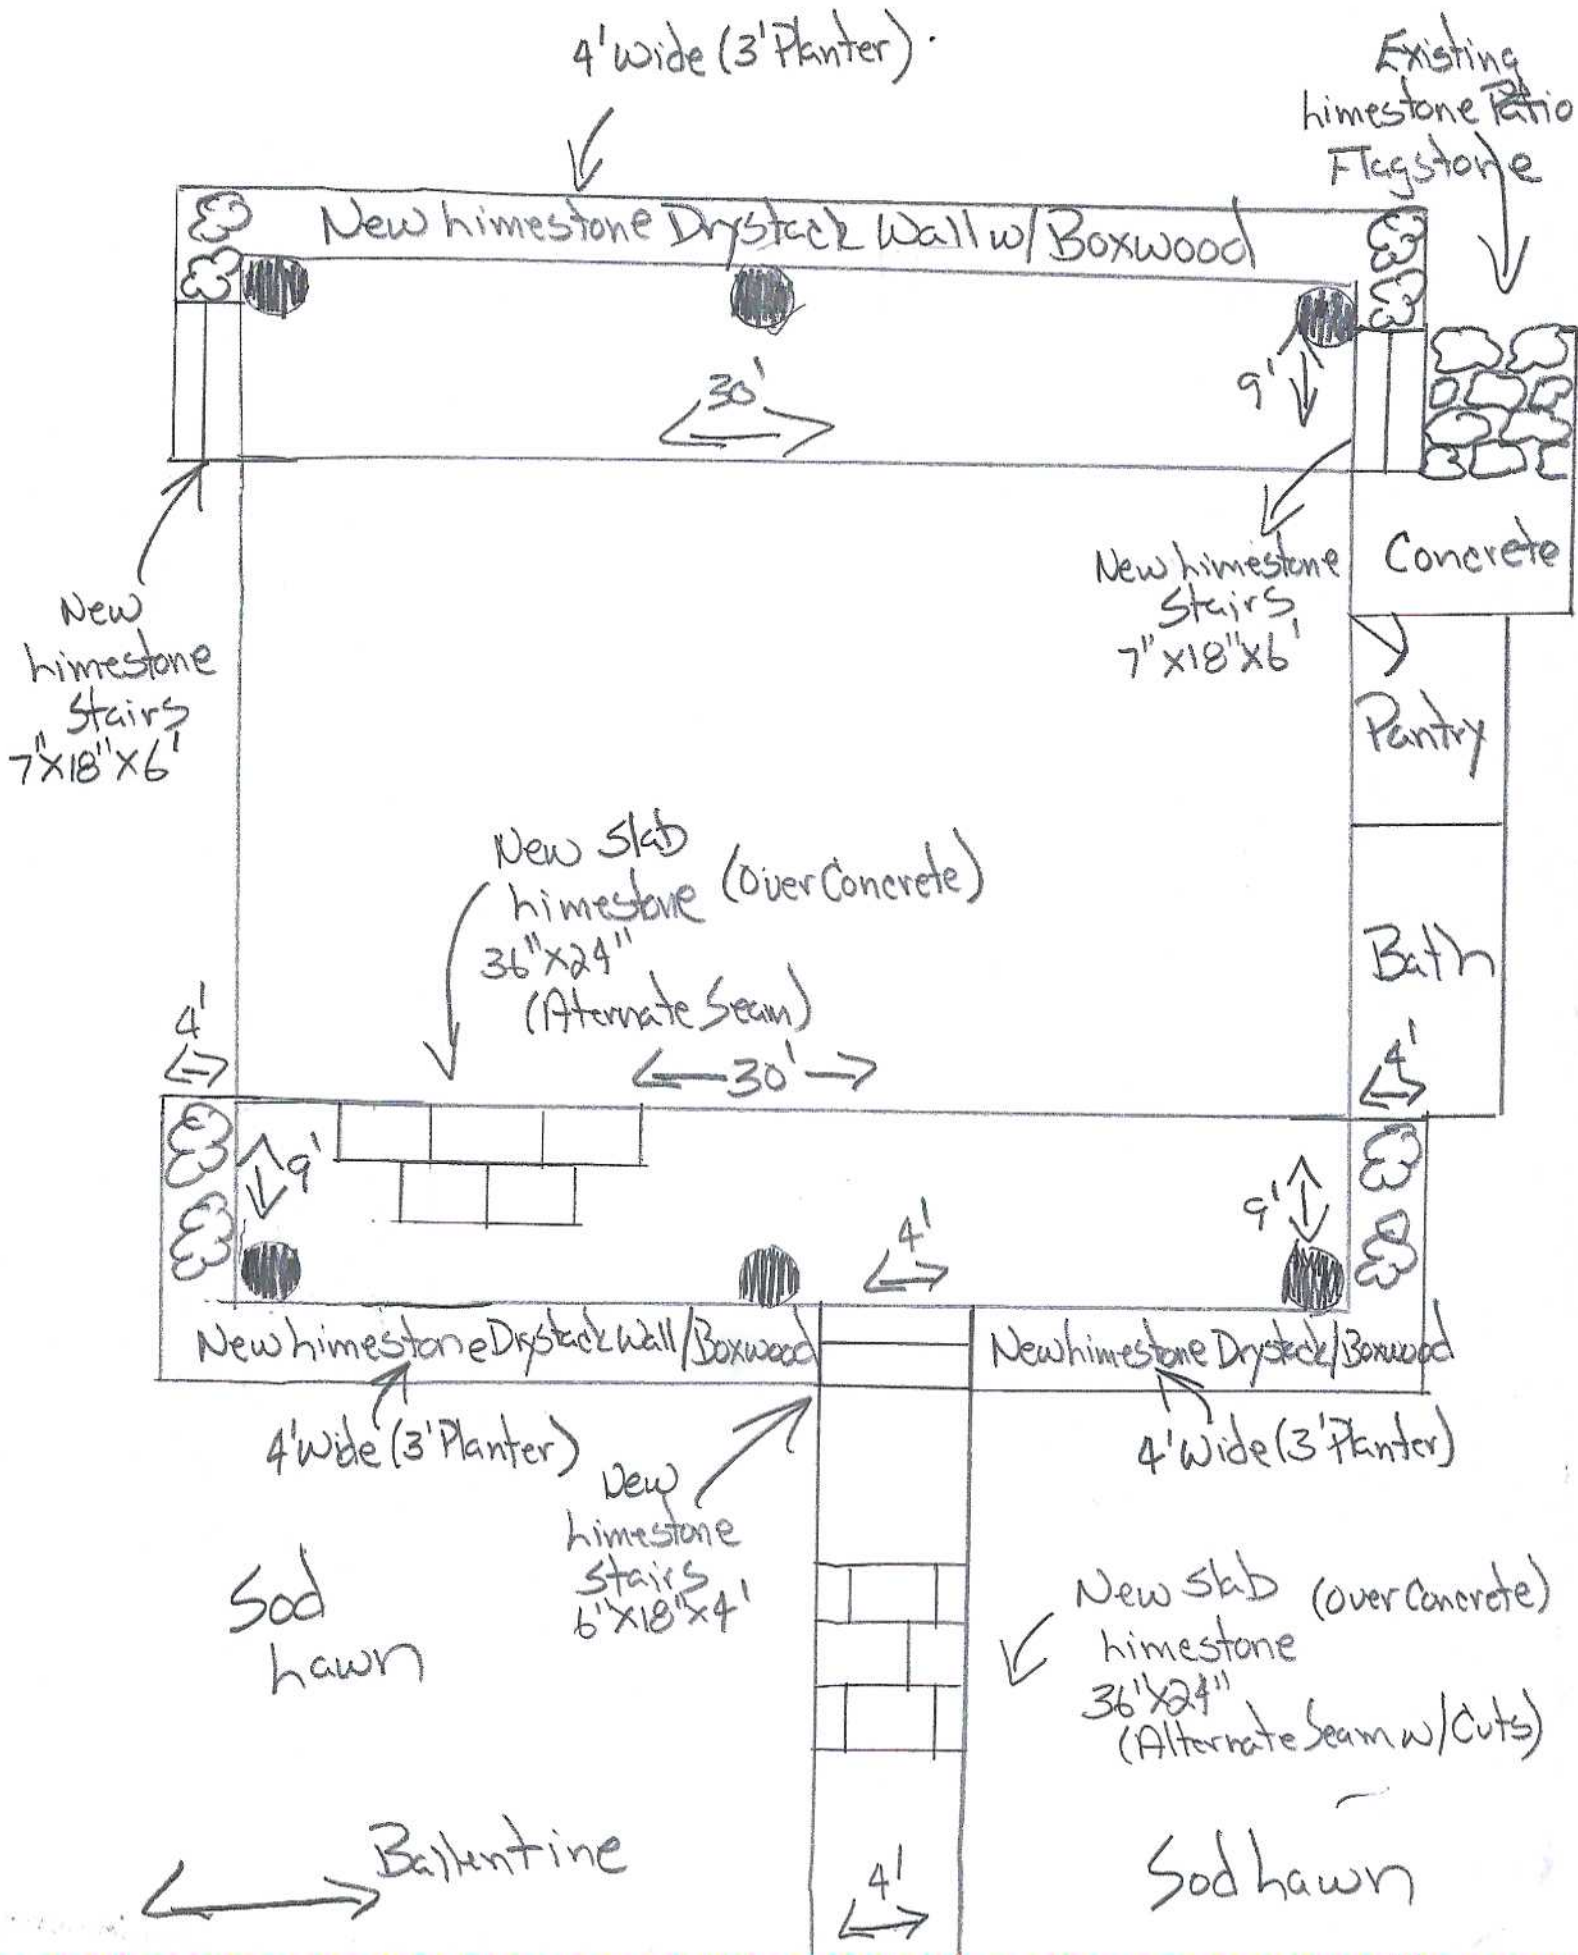 4' Wide (3' Planter).
Existing
Limestone Patio
Flagstone
New Limestone Drystack Wall w/ Boxwood
30'
9'
New Limestone
Stairs
7"X18"X6'
Concrete
New
Limestone
Stairs
7"X18"X6'
Pantry
New Slab
Limestone (Over Concrete)
36"X24"
(Aternate Seam)
Bath
4'
30'
4'
9'
9'
4'
New Limestone Drystack Wall/Boxwood
New Limestone Drystack/Boxwood
4' Wide (3' Planter)
4' Wide (3' Planter)
New
Limestone
Stairs
6'X18"X4'
Sod
Lawn
New Slab (over Concrete)
Limestone
36"X24"
(Alternate Seam w/Cuts)
Ballentine
4'
Sod Lawn